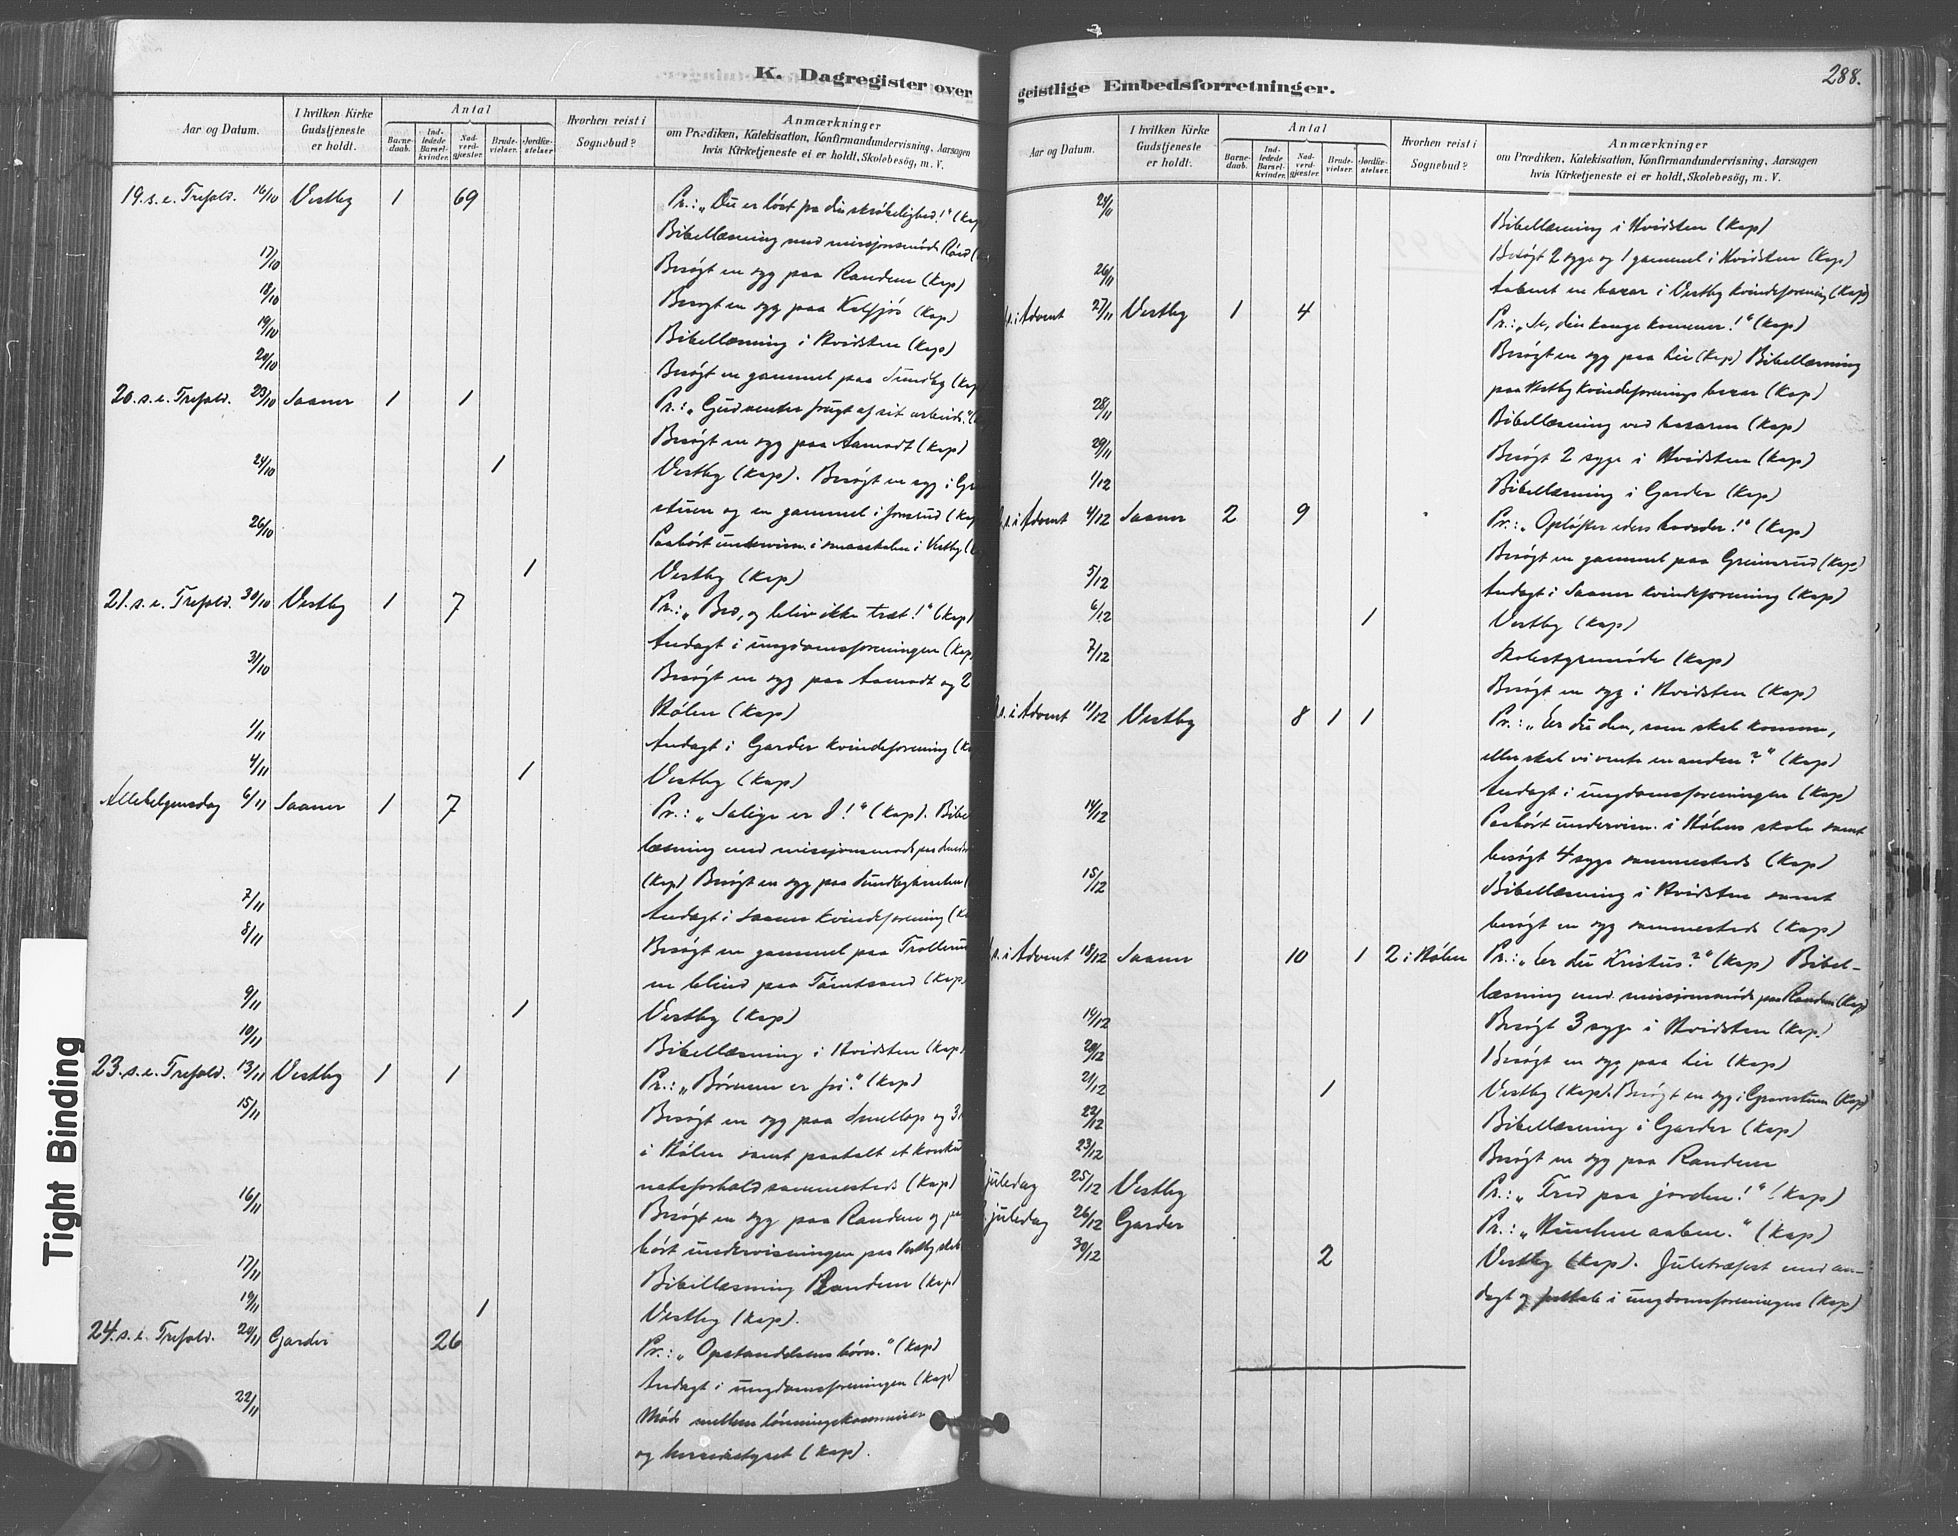 K. Dagregister over
Aar og Datum.
I hvilken Kirke Gudstjeneste er holdt.
Antal
Barnedaab.
Indledede Barselkvinder.
Nadverdgjester.
Brudevielser.
Jordfæstelser
Hvorhen reist i Sognebud?
Anmærkninger
om Prædiken, Katekisation, Konfirmandundervisning, Aarsagen
hvis Kirketjeneste ei er holdt, Skolebesög, m. V.
19. s. e. Trefold. 16/10 Vestby 1 69 Pr.: „Du er löst fra din skröbelighed!“ (Kap
Bibellæsning med missionsmöde
17/10 Besögt en syg paa Randem (Kap)
18/10 Besögt en syg paa Kolsjös (Kap)
19/10 Bibellæsning i Hvidsten (Kap)
20/10 Besögt en gammel paa Sundby (Kap
20. s. e. Trefold. 23/10 Saaner 1 1 Pr.: „Gud venter frugt af sit arbeide.“
Besögt en syg paa Aamodt (Kap)
24/10 1 Vestby (Kap). Besögt en syg i
stuen og en gammel i (Kap
26/10 Paahört undervisn. i smaaskolen i Vestby
1 Vestby (Kap)
21. s. e. Trefold. 30/10 Vestby 1 7 Pr.: „Bed, og bliv ikke træt!“ (Kap)
Andagt i ungdomsforeningen (Kap
31/10 Besögt en syg paa Aamodt og 2
Hölen (Kap)
1/11 Andagt i Garder kvindeforening
4/11 1 Vestby (Kap)
Allehelgensdag 6/11 Saaner 1 7 Pr.: „Salige er I!“ (Kap). Bibel
læsning med missionsmöde paa
(Kap) Besögt en syg paa
7/11 Andagt i Saaner kvindeforening
8/11 Besögt en gammel paa
en blind paa (Kap
9/11 1 Vestby (Kap)
10/11 Bibellæsning i Hvidsten (Kap)
23. s. e. Trefold. 13/11 Vestby 1 1 Pr.: „Börnene er fri.“ (Kap)
15/11 Besögt en syg paa og 3
i Hölen samt paatalt et
natsforhold sammesteds (Kap)
16/11 Besögt en syg paa Randem og paa
hört undervisningen paa Vestby skole
17/11 Bibellæsning Randem (Kap)
19/11 1 Vestby (Kap).
24. s. e. Trefold. 20/11 Garder 26 Pr.: „Opstandelsens börn.“ (Kap)
Andagt i ungdomsforeningen (Kap)
22/11 Möde mellem lönningskommissionen
og herredsstyret (Kap).
geistlige Embedsforretninger.
288.
Aar og Datum.
I hvilken Kirke Gudstjeneste er holdt.
Antal
Barnedaab.
Indledede Barselkvinder.
Nadverdgjæster.
Brudevielser.
Jordfæstelser.
Hvorhen reist i Sognebud?
Anmærkninger
om Prædiken, Katekisation, Konfirmandundervisning, Aarsagen
hvis Kirketjeneste ei er holdt, Skolebesög, m. V.
Bibellæsning i Hvidsten (Kap)
Besögt 2 syge og 1 gammel i Hvidsten (Kap)
26/11 Aabnet en bazar i Vestby kvindeforening (Kap)
s. i Advent 27/11 Vestby 1 4 Pr.: „Se, din konge kommer!“ (Kap)
Besögt en syg paa Lie (Kap) Bibellæsning
paa Vestby kvindeforenings bazar (Kap)
28/11 Bibellæsning ved bazaren (Kap)
29/11 Besögt 2 syge i Hvidsten (Kap)
1/12 Bibellæsning i Garder (Kap)
s. i Advent 4/12 Saaner 2 9 Pr.: „Oplöfter eders hoveder!“ (Kap)
Besögt en gammel paa Greimsrud (Kap)
5/12 Andagt i Saaner kvindeforening (Kap)
6/12 1 Vestby (Kap)
7/12 Skolestyremöde (Kap)
Besögt en syg i Hvidsten (Kap)
s. i Advent 11/12 Vestby 8 1 1 Pr.: „Er du den, som skal komme,
eller skal vi vente en anden?“ (Kap)
Andagt i ungdomsforeningen (Kap)
14/12 Paahört undervisn. i Hölens skole samt
besögt 4 syge sammesteds (Kap)
15/12 Bibellæsning i Hvidsten samt
besögt en syg sammesteds (Kap)
s. i Advent 18/12 Saaner 10 1 2 i Hölen Pr.: „Er du Kristus?“ (Kap) Bibel-
læsning med missionsmöde paa Randem (Kap)
19/12 Besögt 3 syge i Hvidsten (Kap)
20/12 Besögt en syg paa Lie (Kap)
21/12 1 Vestby (Kap). Besögt en syg i (Kap)
22/12 Bibellæsning i Garder (Kap)
23/12 Besögt en syg paa Randem
juledag 25/12 Vestby Pr.: „Fred paa jorden!“ (Kap)
juledag 26/12 Garder Pr.: „Himlene aabne.“ (Kap)
30/12 2 Vestby (Kap). Juletræfest med an-
dagt og i ungdomsforeningen (Kap)
Tight Binding